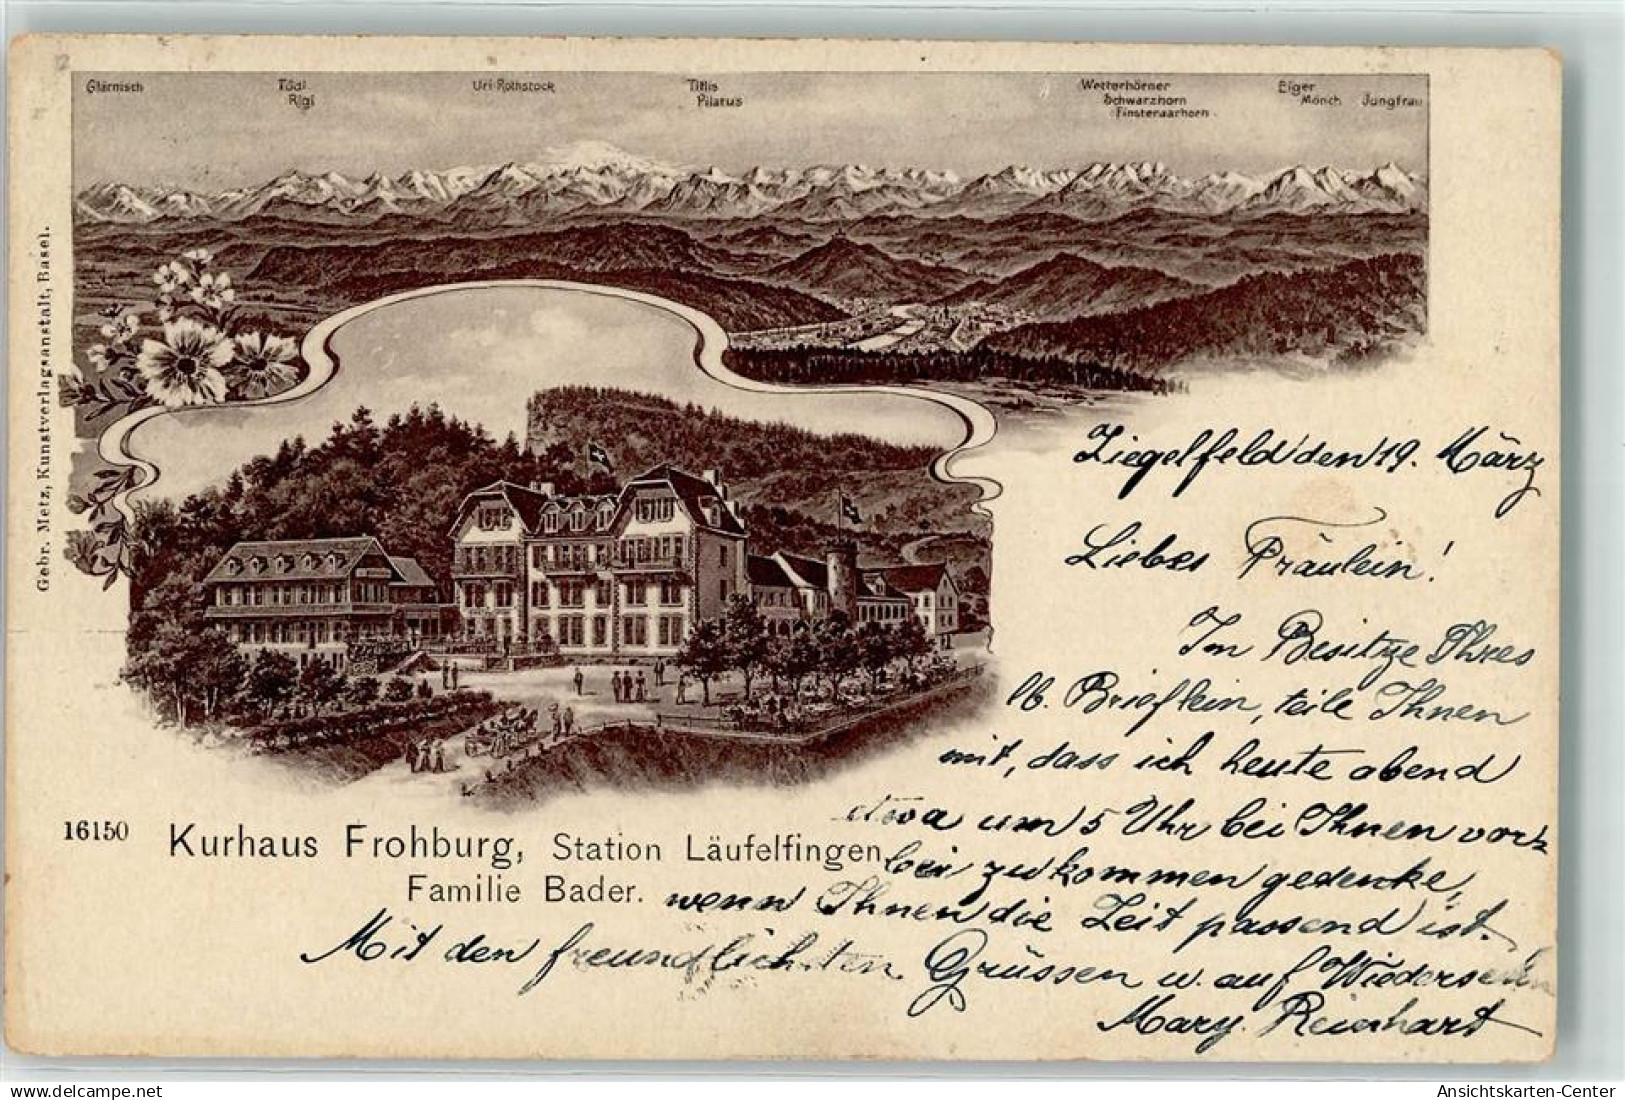 Glärnisch
Tödi
Rigi
Uri-Rothstock
Titlis
Pilatus
Wetterhörner
Schwarzhorn
Finsteraarhorn
Eiger
Mönch
Jungfrau
Gebr. Metz, Kunstverlagsanstalt, Basel.
Ziegelfeld den 19. März
Liebes Fräulein!
Im Besitze Ihres
lb. Brieflein, teile Ihnen
mit, dass ich heute abend
etwa um 5 Uhr bei Ihnen vor-
bei zu kommen gedenke,
wenn Ihnen die Zeit passend ist.
Mit den freundlichsten Grüssen u. auf Wiedersehn
Mary Reinhart
16150 Kurhaus Frohburg, Station Läufelfingen
Familie Bader.
Ansichtskarten-Center